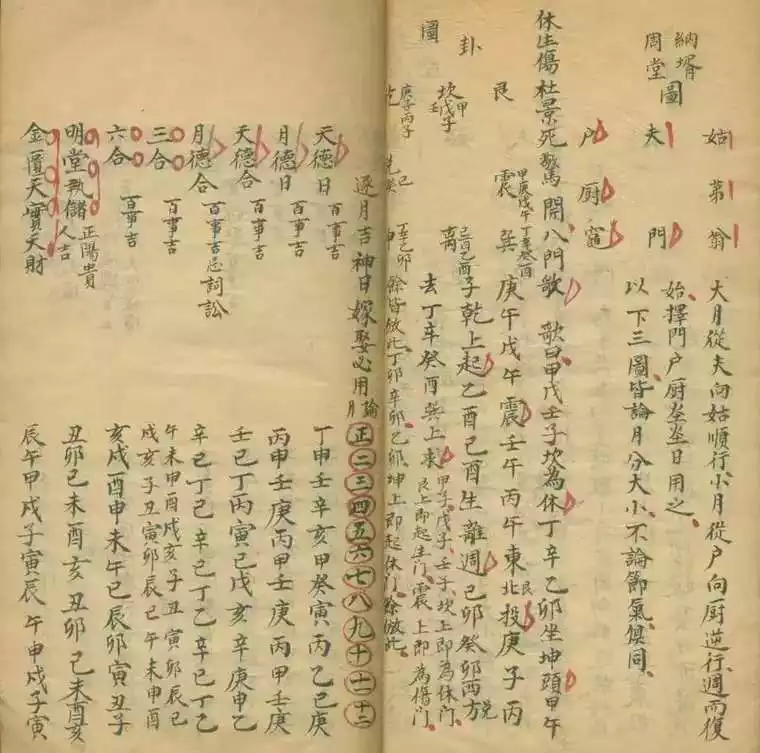 納婿周堂圖
姑　弟　翁
夫　門
户　厨　竈
大月從夫向姑順行小月從户向厨逆行週而復
始擇門户厨灶日用之
以下三圖皆論月分大小不論節氣俱同
休生傷杜景死驚開八門歌　歌曰甲戊壬子坎為休丁辛乙卯坐坤頭甲午
艮　震　甲庚戊午　巽　丁辛癸酉　庚午戊午震壬午丙午東北艮投庚子丙
卦　坎　甲戊子壬　离　己酉乙酉　子乾上起乙酉己酉生離週己卯癸卯西方兌
去丁辛癸酉巽上求　甲子戊子壬子坎上即為休門
艮上即起生門震上即為傷門
圖
庚子丙子　乾　己　兌癸　丁辛乙卯　坤　餘皆倣此丁卯辛卯乙卯坤上即起休門餘倣此
逐月吉神日嫁娶必用論月　正二三四五六七八九十十一十二
天德日　百事吉　丁申壬辛亥甲癸寅丙乙己庚
月德日　百事吉　丙甲壬庚丙甲壬庚丙甲壬庚
天德合　百事吉　壬己丁丙寅己戊亥辛庚申乙
月德合　百事吉忌詞訟　辛己丁乙辛己丁乙辛己丁乙
三合　百事吉　午未申酉戌亥子丑寅卯辰巳
戌亥子丑寅卯辰巳午未申酉
六合　百事吉　亥戌酉申未午巳辰卯寅丑子
明堂執儲　正陽貴人吉　丑卯巳未酉亥丑卯巳未酉亥
金匱天寶天財　辰午申戌子寅辰午申戌子寅